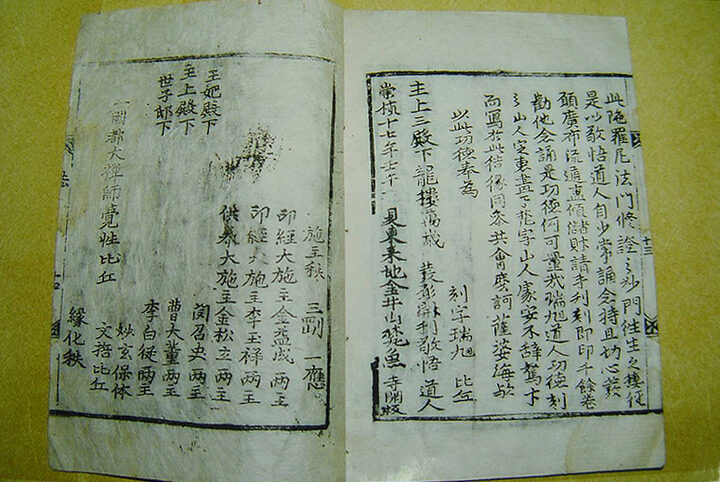 此陁羅尼法門修證之妙門徃生之捷徑
是以敬悟道人自少常誦念持且切心發
願廣布流通盡傾儲財請手利刻即印千餘卷
勸他念誦是功德何可量哉瑞旭道人功德刻
之山人定東書下字山人處安不辞駑下
而寫於此結緣同參共會摩訶薩婆海歟
以此功德奉為 刻字瑞旭 比丘
主上三殿下龍樓萬歲 敬悟道人
崇禎十七年 夏東萊地金井山梵魚寺開板
施主秩 三 一應
印經大施主金益成 兩主
印經大施主李王祿 兩主
供養大施主金松立 兩主
王妃殿下 閔召史 兩主
主上殿下 曹大董 兩主
世子邸下 李白從 兩主
玄保体
一國都大禪師覺性比丘 文捂比丘
緣化秩
法